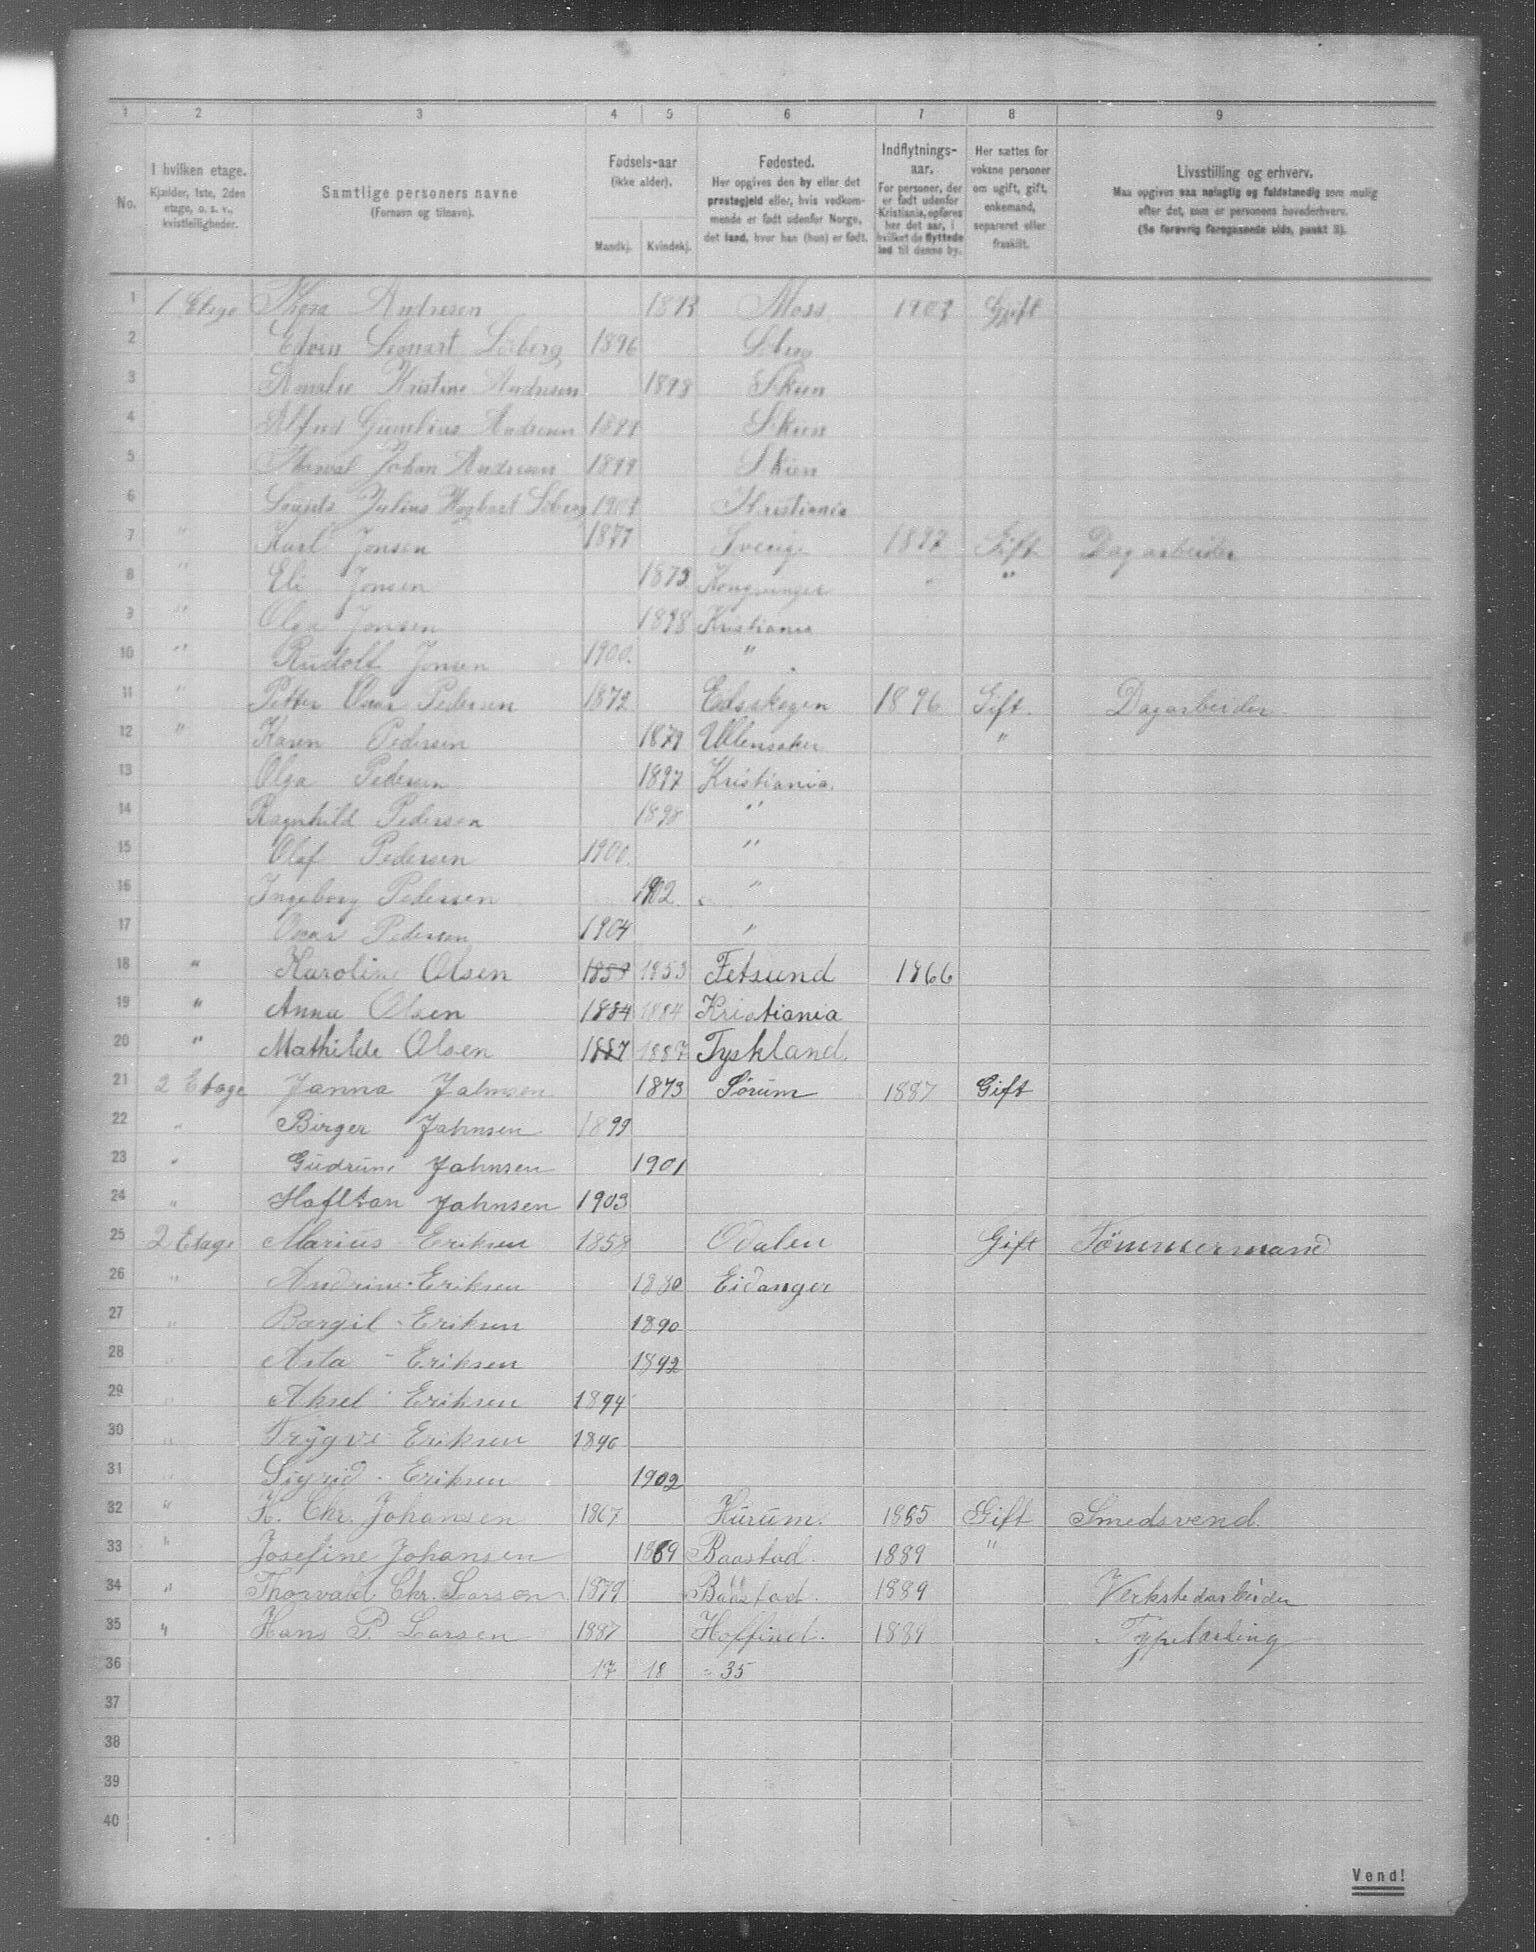 1 2 3 4 5 6 7 8 9
No.
I hvilken etage.
Kjælder, 1ste, 2den
etage, o. s. v.,
kvistleiligheder.
Samtlige personers navne
(Fornavn og tilnavn).
Fødsels-aar
(ikke alder).
Mandkj. Kvindekj.
Fødested.
Her opgives den by eller det
prestegjeld eller, hvis vedkom-
mende er født udenfor Norge,
det land, hvor han (hun) er født.
Indflytnings-
aar.
For personer, der
er født udenfor
Kristiania, opføres
her det aar, i
hvilket de flyttede
ind til denne by.
Her sættes for
voksne personer
om ugift, gift,
enkemand,
separeret eller
fraskilt.
Livsstilling og erhverv.
Maa opgives saa nøiagtig og fuldstændig som mulig
efter det, som er personens hovederhverv.
(Se forøvrig foregaaende side, punkt 3).
1 1 Etage Thora Andresen Moss 1903 Gift
2 Edvin Leonart Søberg 1896
3 Amalie Kristine Andresen 1898 Skien
4 Alfred Andresen Skien
5 Thorval Johan Andresen 1899 Skien
6 Julius Kristiania
7 " Karl Jonsen 1877 Sverige 1897 Gift Dagarbeider
8 " Eli Jonsen 1873 Kongsvinger " "
9 " Olga Jonsen 1898 Kristiania
10 " Rudolf Jonsen 1900. "
11 " Petter Oscar Pedersen 1872 Edsskogen 1896 Gift. Dagarbeider
12 " Karen Pedersen 1879 Ullensaker "
13 Olga Pedersen 1897 Kristiania.
14 Ragnhild Pedersen 1898 "
15 Olaf Pedersen 1900. "
16 Ingeborg Pedersen 1902. "
17 Oscar Pedersen 1904 "
18 " Karoline Olsen 1853 1853 Fetsund 1866
19 " Anna Olsen 1884 1884 Kristiania
20 " Mathilde Olsen 1887 1887 Tyskland.
21 2 Etage Janna Jahnsen 1873 Sørum 1887 Gift
22 " Birger Jahnsen 1899
23 " Gudrun Jahnsen 1901
24 " Halfdan Jahnsen 1903
25 2 Etage Marius Eriksen 1858 Odalen Gift Tömmermand
26 " Andrine Eriksen Eidanger
27 " Borgil Eriksen 1890
28 " Asta Eriksen 1892
29 " Aksel Eriksen 1894
30 " Trygve Eriksen 1896
31 " Sigrid Eriksen 1902
32 " K. Chr. Johansen 1867 Hurum. 1885 Gift Smedsvend.
33 " Josefine Johansen 1869 Baastad. 1889 "
34 " Thorvald Chr. Larsen 1879 Baastad. 1889 Verkstedarbeider
35 " Hans P. Larsen 1887 Hoffind. 1889 Typelærling
36 17 18 = 35
37
38
39
40
Vend!